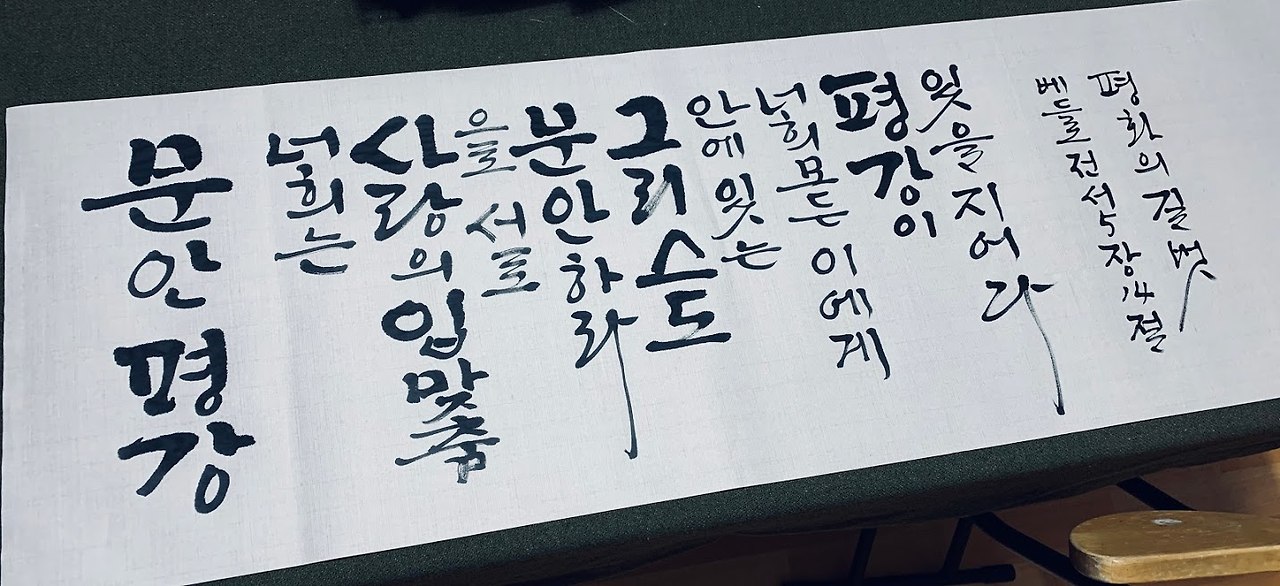 문안 평강
너희는
사랑의 입맞춤
으로 서로
문안하라
그리스도
안에 잇는
너희 모든 이에게
평강이
잇을지어다
베드로전서 5장 14절
평화의 길벗